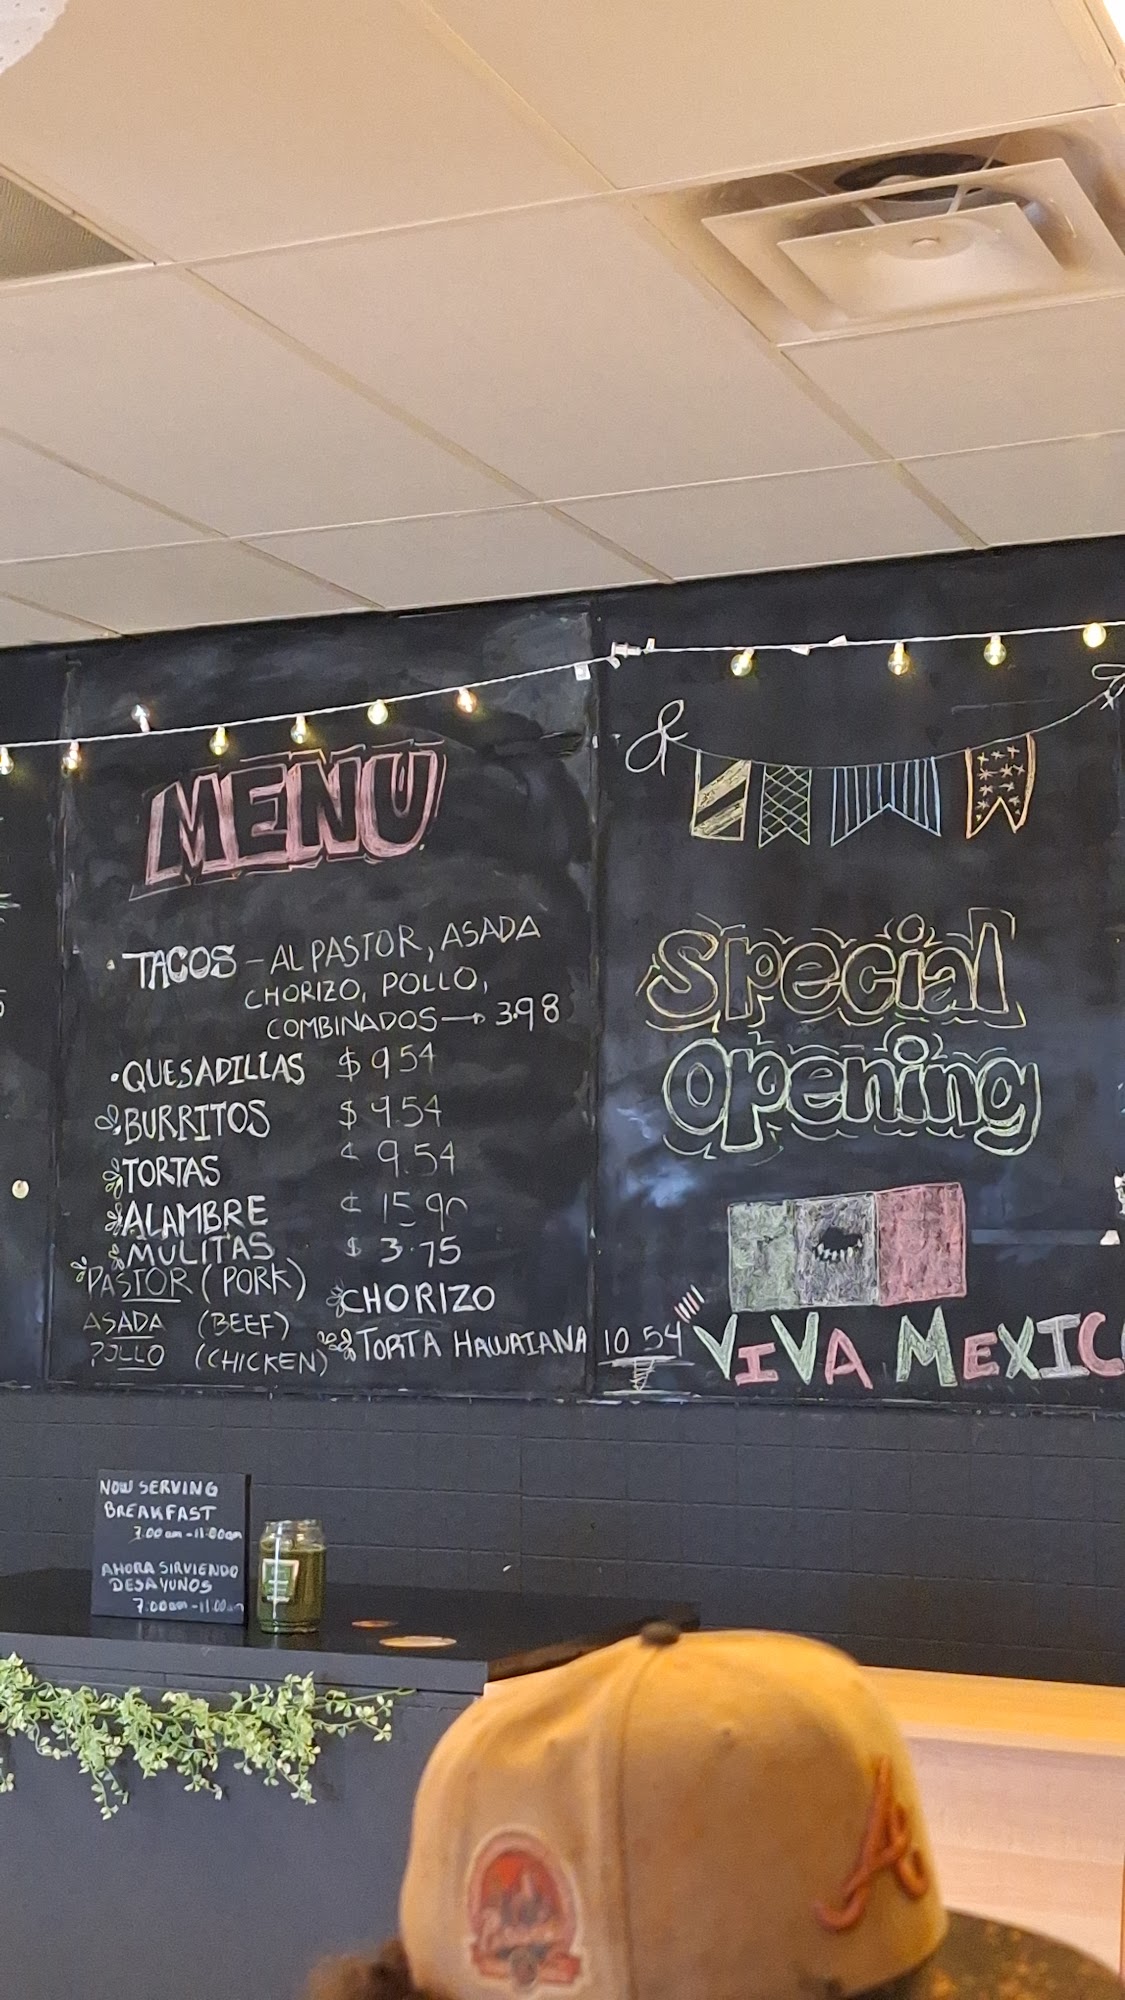 MENU
· TACOS - AL PASTOR, ASADA
CHORIZO, POLLO,
COMBINADOS → 3.98
· QUESADILLAS $ 9.54
BURRITOS $ 9.54
TORTAS 9.54
ALAMBRE 15.90
MULITAS $ 3.75
PASTOR (PORK)
ASADA (BEEF)
POLLO (CHICKEN)
CHORIZO
TORTA HAWAIANA 10.54
Special
Opening
VIVA MEXICO
NOW SERVING
BREAKFAST
7:00am - 11:00am
AHORA SIRVIENDO
DESAYUNOS
7:00am - 11:00am
A